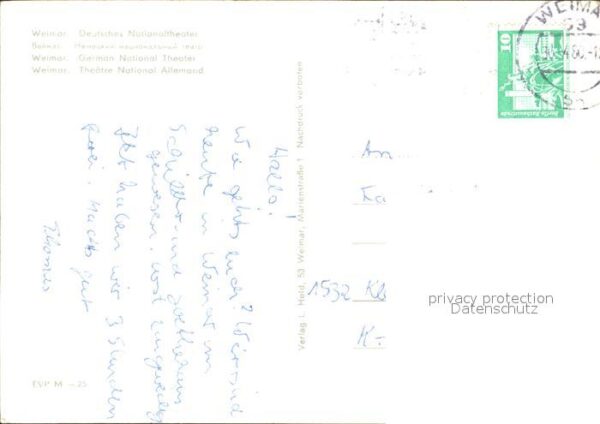 Weimar. Deutsches Nationaltheater
Веймар. Немецкий национальный театр
Weimar. German National Theater
Weimar. Théâtre National Allemand
Hallo!
Wie geht's Euch? Wir sind
heute in Weimar im
Schiller- und Goethehaus
gewesen.
Jetzt haben wir 3 Stunden
frei. Macht's gut
Thomas
EVP M –.25
Verlag L. Held, 53 Weimar, Marienstraße 1 Nachdruck verboten
WEIMAR
10
An
1532 Kl
K-
privacy protection
Datenschutz